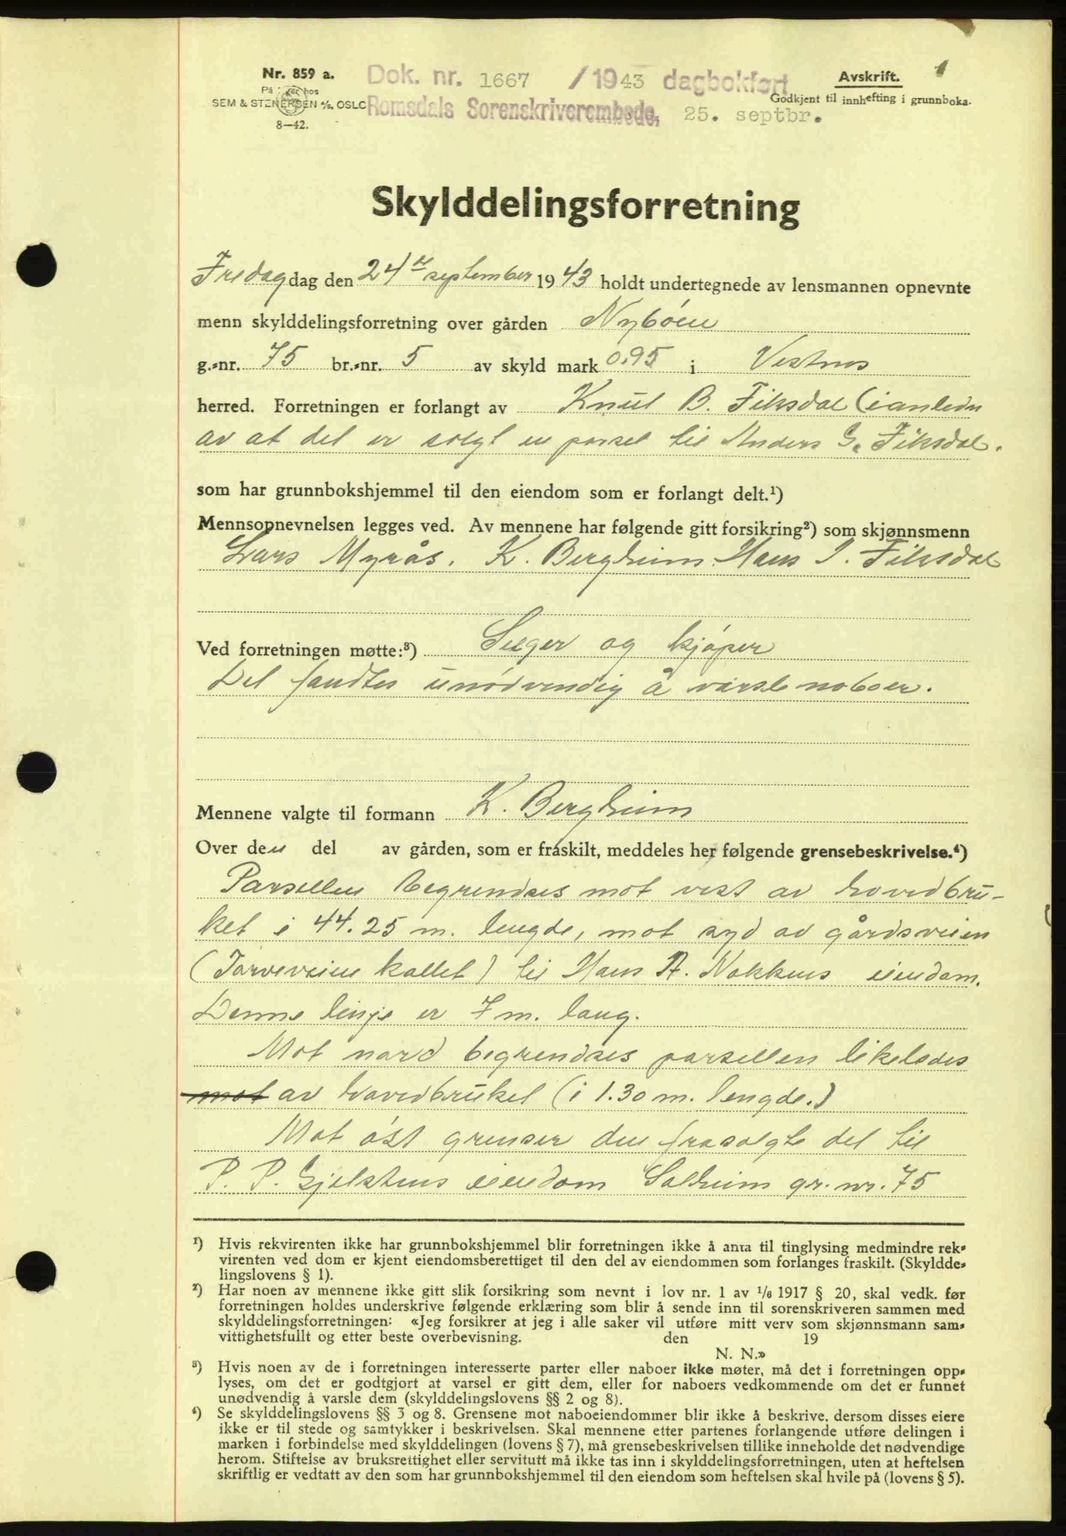 Nr. 859 a.
På lager hos
SEM & STENERSEN A/S, OSLO
8—42.
Dok. nr. 1667 /1943 dagbokført
Romsdals Sorenskriverembede, 25. septbr.
Avskrift. 1
Godkjent til innhefting i grunnboka.
Skylddelingsforretning
Fredag dag den 24de september 1943 holdt undertegnede av lensmannen opnevnte
menn skylddelingsforretning over gården Nybøen
g.-nr. 75 br.-nr. 5 av skyld mark 0.95 i Vestnes
herred. Forretningen er forlangt av Knut B. Fiksdal (i anledn
av at det er solgt en parsel til Anders G. Fiksdal.
som har grunnbokshjemmel til den eiendom som er forlangt delt.¹)
Mennsopnevnelsen legges ved. Av mennene har følgende gitt forsikring²) som skjønnsmenn
Lars Myrås. K. Bergheim. Hans I. Fiksdal
Ved forretningen møtte:³) Selger og kjøper
Det fandtes unødvendig å varsle naboer.
Mennene valgte til formann K. Bergheim
Over den del av gården, som er fraskilt, meddeles her følgende grensebeskrivelse.⁴)
Parsellen begrendses mot vest av hovedbru-
ket i 44.25 m. lengde, mot syd av gårdsveien
(Torvveien kallet) til Hans A. Nakkens eiendom.
Denne linje er 7 m. lang.
Mot nord begrendses parsellen likeledes
mot av hovedbruket (i 1.30 m. lengde.)
Mot øst grenser den frasolgte del til
P. P. Gjelstens eiendom Solheim gr. nr. 75
¹) Hvis rekvirenten ikke har grunnbokshjemmel blir forretningen ikke å anta til tinglysing medmindre rek-
virenten ved dom er kjent eiendomsberettiget til den del av eiendommen som forlanges fraskilt. (Skyldde-
lingslovens § 1).
²) Har noen av mennene ikke gitt slik forsikring som nevnt i lov nr. 1 av 1/6 1917 § 20, skal vedk. før
forretningen holdes underskrive følgende erklæring som blir å sende inn til sorenskriveren sammen med
skylddelingsforretningen: «Jeg forsikrer at jeg i alle saker vil utføre mitt verv som skjønnsmann sam-
vittighetsfullt og etter beste overbevisning. den 19
N. N.»
³) Hvis noen av de i forretningen interesserte parter eller naboer ikke møter, må det i forretningen opp-
lyses, om det er godtgjort at varsel er gitt dem, eller for naboers vedkommende om det er funnet
unødvendig å varsle dem (skylddelingslovens §§ 2 og 8).
⁴) Se skylddelingslovens §§ 3 og 8. Grensene mot naboeiendommer blir ikke å beskrive, dersom disses eiere
ikke er til stede og samtykker i beskrivelsen. Skal mennene etter partenes forlangende utføre delingen i
marken i forbindelse med skylddelingen (lovens § 7), må grensebeskrivelsen tillike inneholde det nødvendige
herom. Stiftelse av bruksrettighet eller servitutt må ikke tas inn i skylddelingsforretningen, uten at heftelsen
skriftlig er vedtatt av den som har grunnbokshjemmel til den eiendom som heftelsen skal hvile på (lovens § 5).